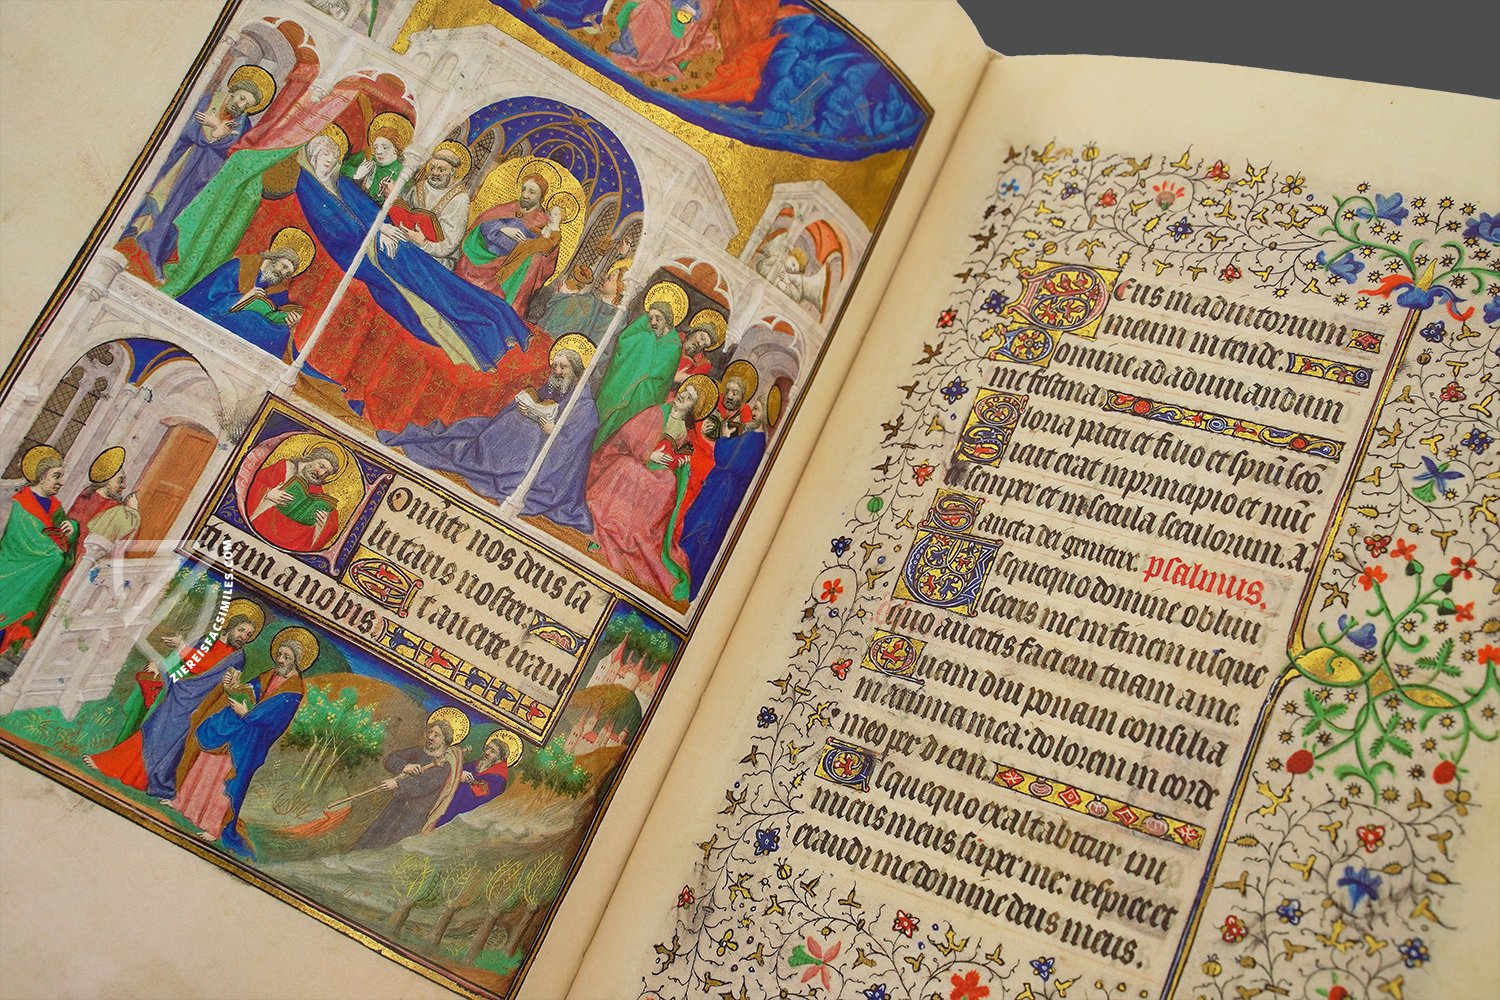 Onũte nos deus sa
lutaris noster.
Et auerte iram
tuam a nobis.
Deus in adiutorium
meum intende.
Domine ad adiuuandum
me festina.
Gloria patri et filio et spũi scõ.
Sicut erat in principio et nũc
et semper et in secula seculorum. A.
Sancta dei genitrix. psalmus.
Usquequo domine obliui
sceris me in finem usque
quo auertis faciem tuam a me.
Quam diu ponam consilia
in anima mea: dolorem in corde
meo per diem.
Usquequo exaltabitur ini
micus meus super me: respice et
exaudi me domine deus meus.
ZIEREISFACSIMILES.COM